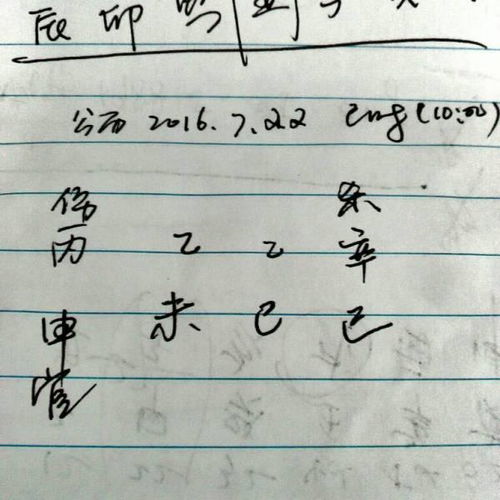 辰 卯
公历 2016.7.22 (10:00)
伤 杀
丙 乙 乙 辛
申 未 巳 巳
官